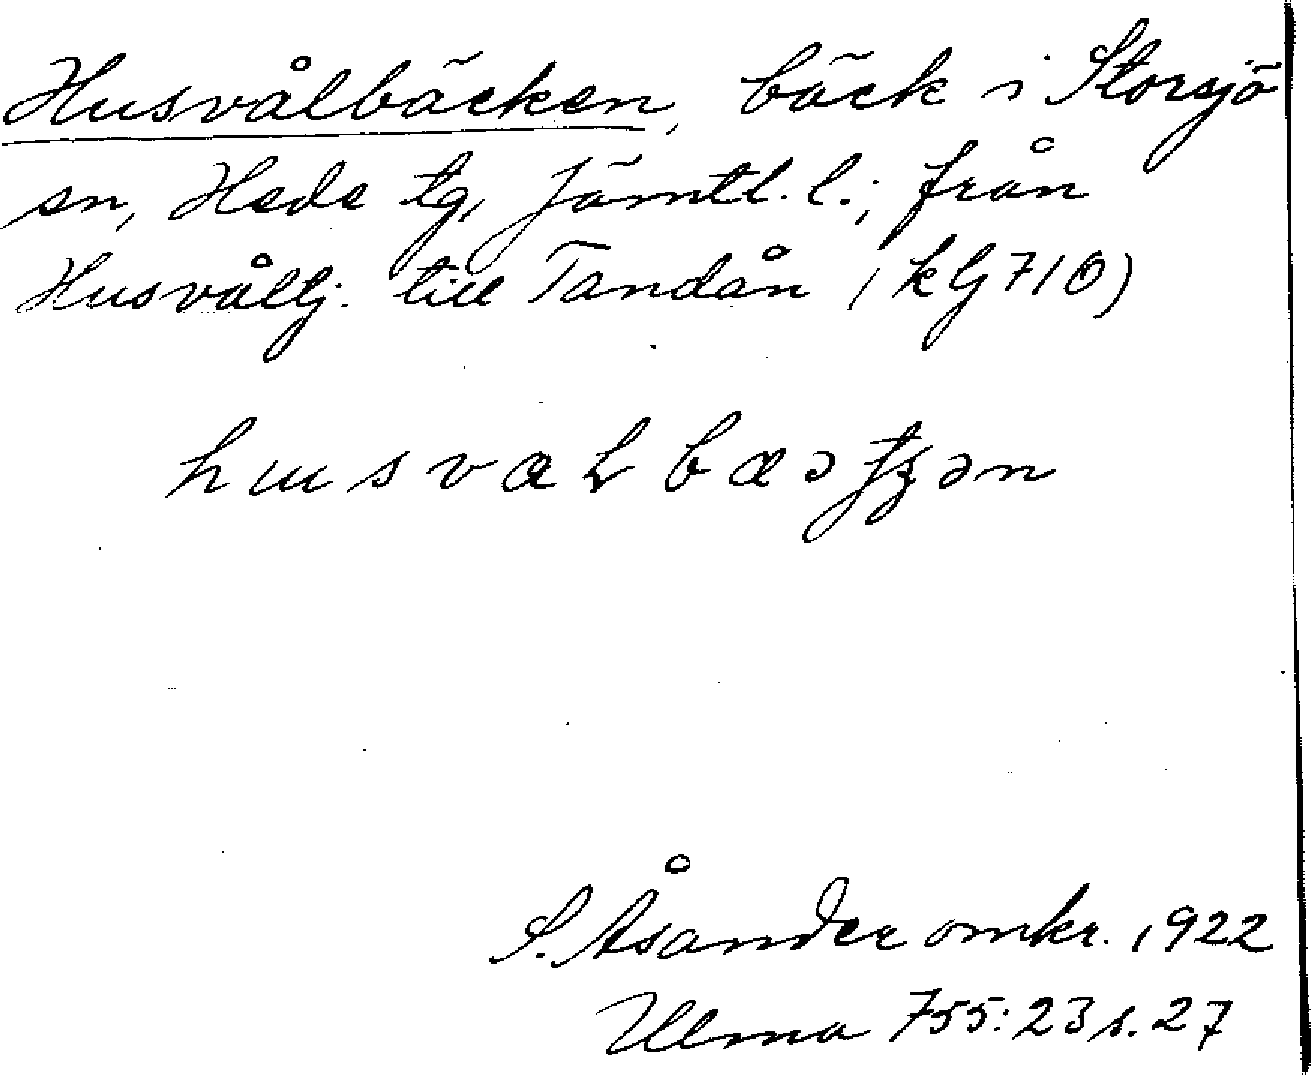 Husvålbäcken, bäck i Storsjö
sn, Hede tg, Jämtl. l.; från
Husvåltj. till Tandån (kbl 710)
S. Åsander omkr. 1922
Ulma 755:23 s. 27